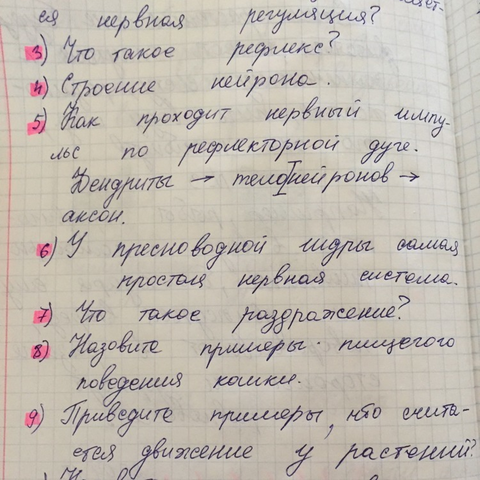 ся нервная регуляция?
3) Что такое рефлекс?
4) Строение нейрона.
5) Как проходит нервный импу-
льс по рефлекторной дуге.
Дендриты → тело нейронов →
аксон.
6) У пресноводной гидры самая
простая нервная система.
7) Что такое раздражение?
8) Назовите примеры пищегого
поведения кошки.
9) Приведите примеры, что счита-
ется движение у растений?